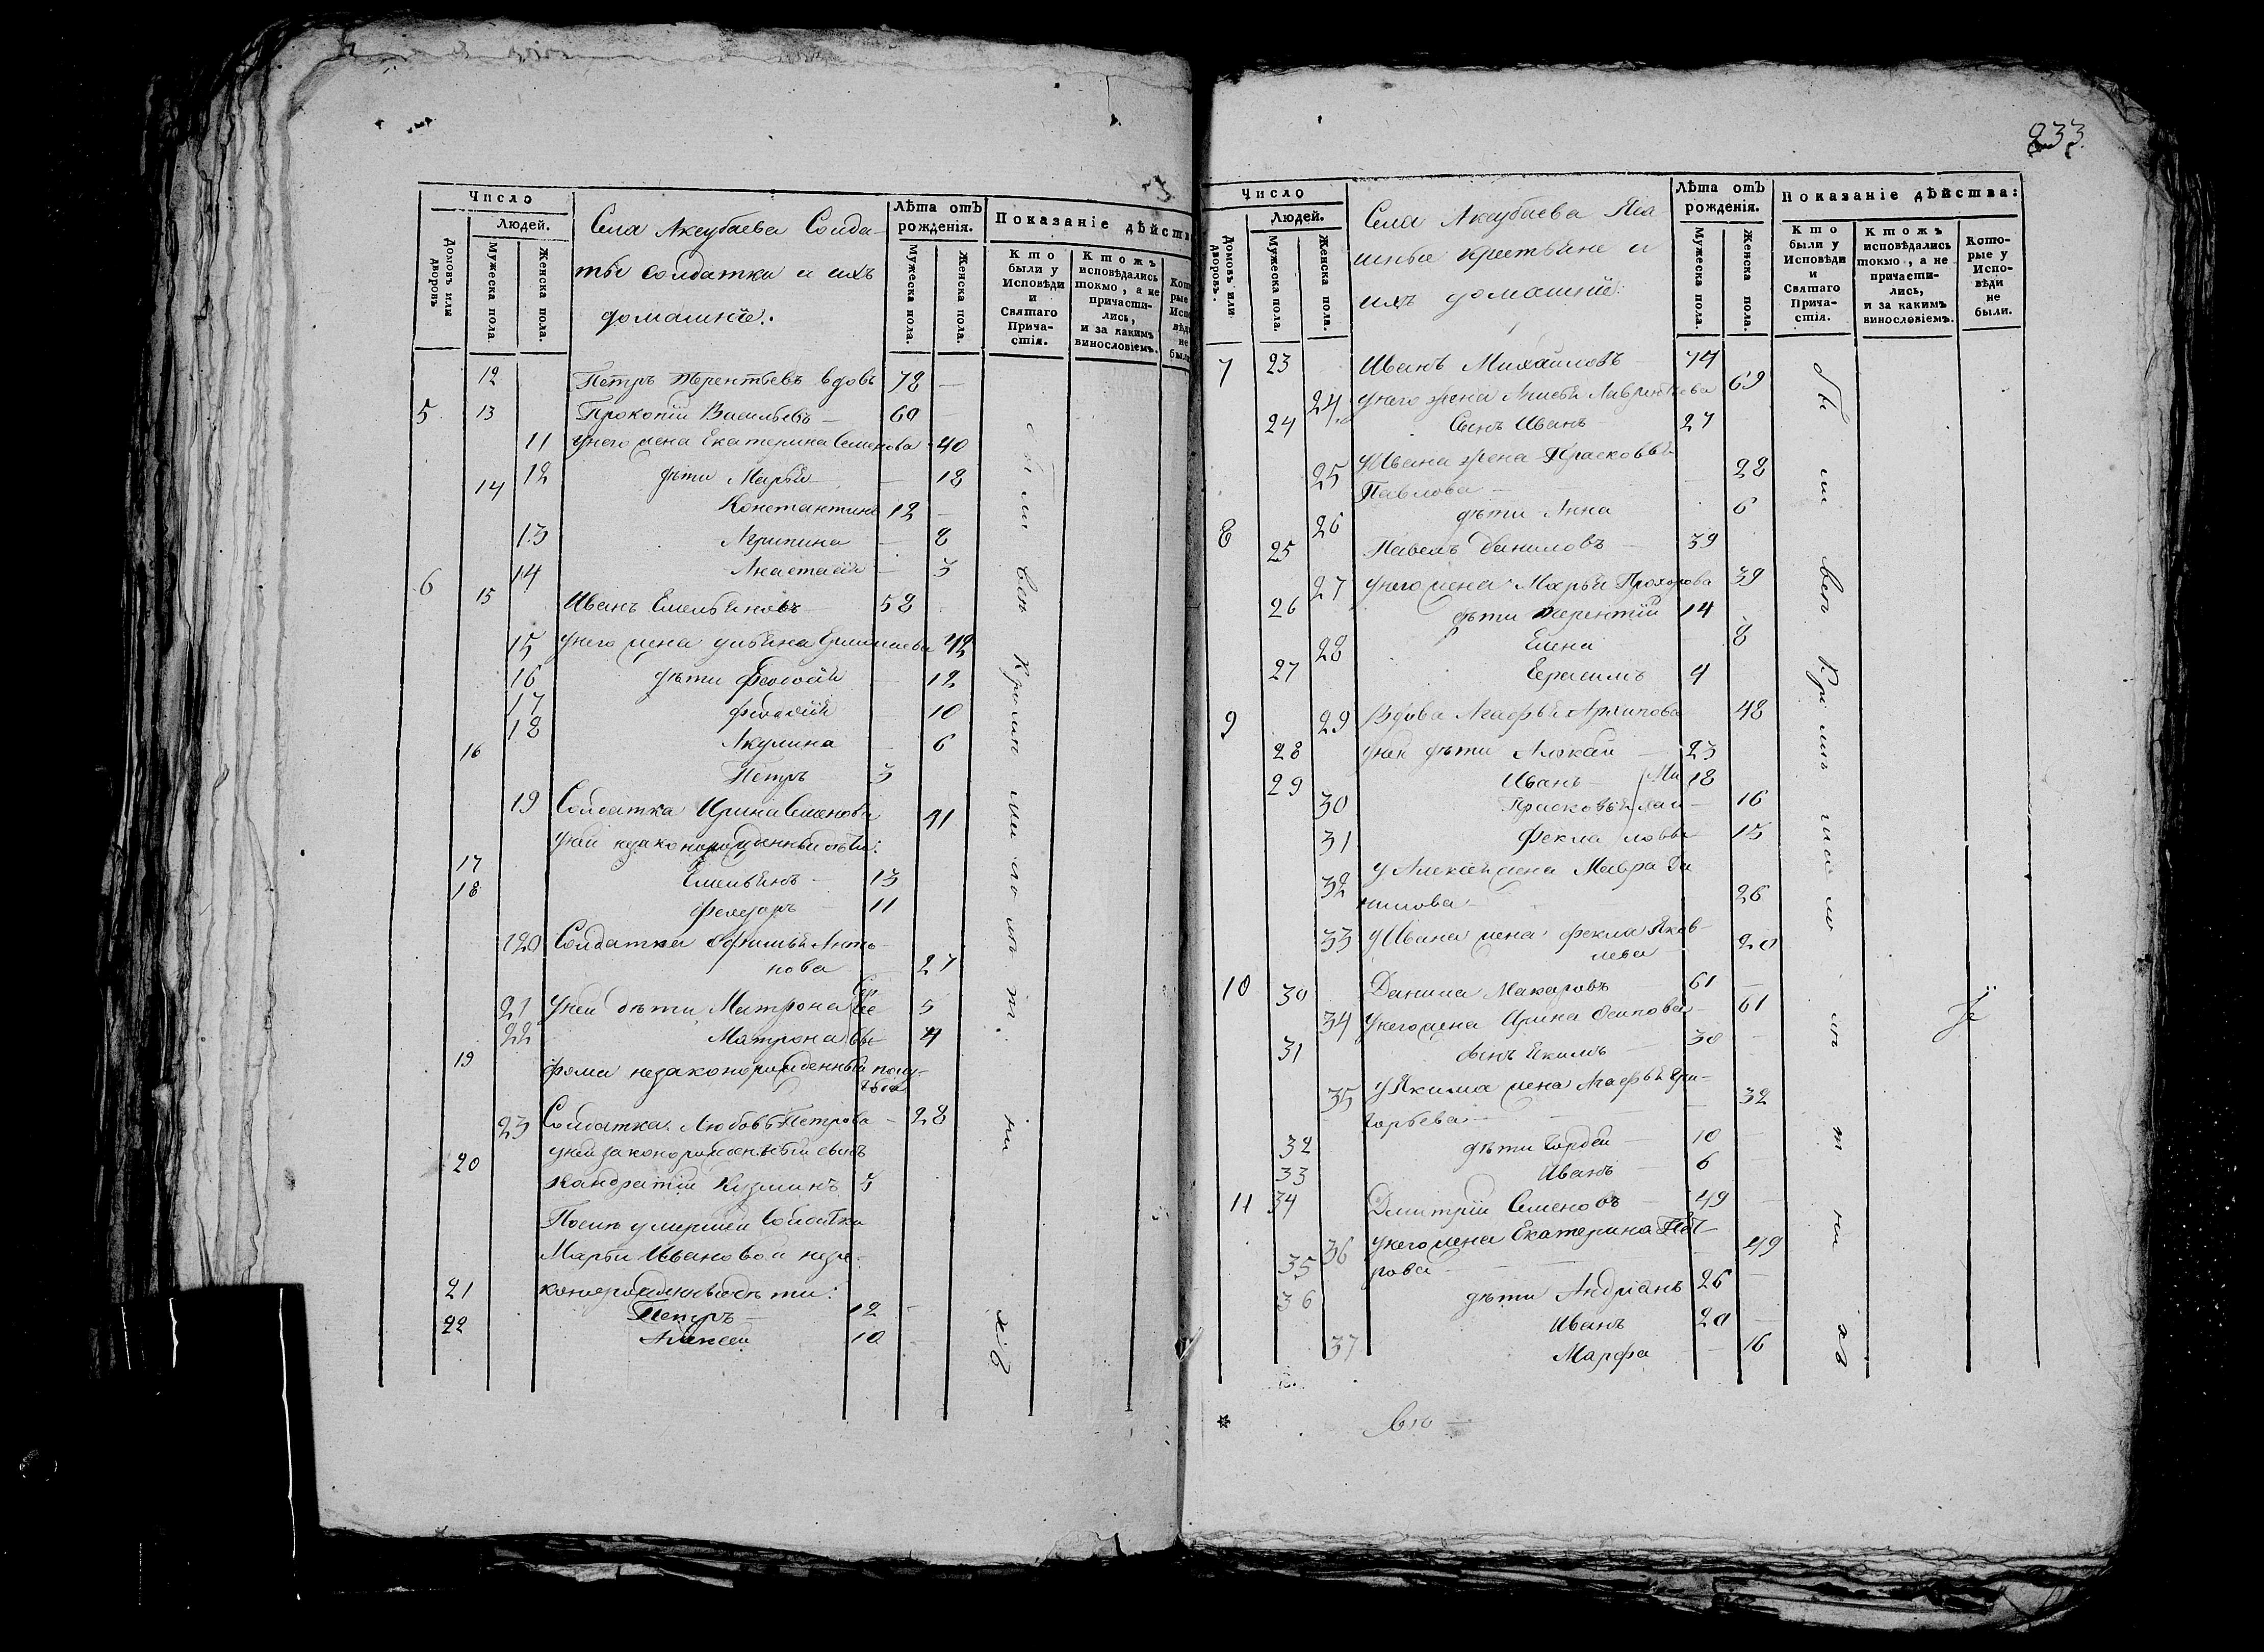 Число
Людей.
Домовъ или дворовъ
Мужеска пола.
Женска пола.
Села Аксубаева Солда-
ты солдатки и ихъ
домашніе:
Лѣта отъ рожденія.
Мужеска пола.
Женска пола.
Показаніе дѣйств
Кто были у Исповѣди и Святаго Прича-стія.
Ктожъ исповѣдались токмо, а не причасти-лись, и за какимъ винословіемъ.
12 Петръ Терентьевъ вдовъ 72 —
5 13 Прокопій Васильевъ — 60 —
11 У него жена Екатерина Семенова 40
12 дѣти Марья — 18
14 Константинъ 12 —
13 Агрипина — 8
14 Анастасія — 3
6 15 Иванъ Емельяновъ 52
15 У него жена Ульяна Ермолаева 42
16 дѣти Феодосія — 12
17 Феодосія 10
18 Акулина — 6
16 Петръ 3
19 Солдатка Ирина Семенова 41
У ней незаконорожденныя дѣти:
17 Емельянъ — 13
18 Феодоръ — 11
20 Солдатка Афимья Анто-
нова — 27
21 У ней дѣти Матрона 5
22 Матрона 4
19 Фома незаконорожденный полу-
года
23 Солдатка Любовь Петрова — 28
20 У ней законорожденный сынъ
Кандратій Кузминъ 5
Послѣ умершей Солдатки
Марьи Ивановой неза-
конорожденныя дѣти:
21 Петръ — 12 —
22 Алексей 10 —
были вси Крым
233
Число
Людей.
Домовъ или дворовъ.
Мужеска пола.
Женска пола.
Села Аксубаева Яса
шные крестьяне и
ихъ домашніе:
Лѣта отъ рожденія.
Мужеска пола.
Женска пола.
Показаніе дѣйства:
Кто были у Исповѣди и Святаго Прича-стія.
Ктожъ исповѣдались токмо, а не причасти-лись, и за какимъ винословіемъ.
Кото-рые у Испо-вѣди не были.
7 23 Иванъ Михайловъ 74
24 У него жена Анисья Лаврентьева 69
24 Сынъ Иванъ 27
25 У Ивана жена Прасковья
Павлова — 28
26 дѣти Анна 6
8 25 Павелъ Даниловъ — 39
27 У него жена Марья Прохорова 39
26 дѣти Терентій 14
28 Елена 8
27 Герасимъ 4
9 29 Вдова Агафья Архипова 48
28 У ней дѣти Алексей — 23
29 Иванъ — Ми 18
30 Прасковья хай — 16
31 Фекла ловы 15
32 У Алексея жена Мавра Да
нилова — 26
33 У Ивана жена Фекла Яков-
лева 20
10 30 Данила Макаровъ 61 —
34 У него жена Ирина Осипова 61
31 сынъ Екимъ — 30 —
35 У Якима жена Агафья Гри-
горьева — 32
32 дѣти Гордей — 10 —
33 Иванъ — 6 —
11 34 Дмитрій Семеновъ — 49 —
36 У него жена Екатерина Пет-
рова — 49
35 дѣти Андріанъ 26 —
36 Иванъ 20 —
37 Марфа — 16